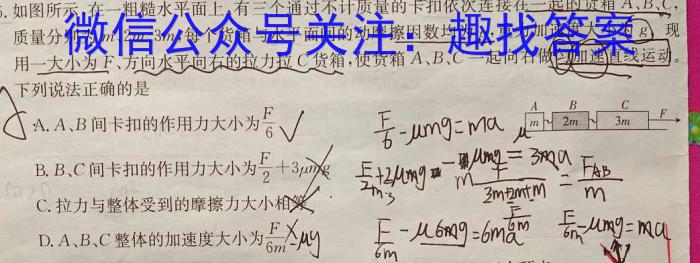 如图所示,在一粗糙水平面上,有三个通过不计质量的卡扣依次连接在一起的货箱A、B、C,
质量分 m、2m、3m,每个货箱与水平面间的动摩擦因数均为 重力加速度大小为g。现
微信公众号关注:趣找答案
用一大小为F、方向水平向右的拉力拉C货箱,使货箱A、B、C一起向右做匀加速直线运动。
下列说法正确的是
A. A、B间卡扣的作用力大小为F/6 √
B. B、C间卡扣的作用力大小为F/2+3μmg
C. 拉力与整体受到的摩擦力大小相等
D. A、B、C整体的加速度大小为F/6m -μg
A B C
m 2m 3m F
μ
F/6 -μmg=ma
μmg = 3ma
F/(3m+2m+m) = F_AB/m
F/6m -μ6mg=6ma
F/6m
F/6m -μmg=ma